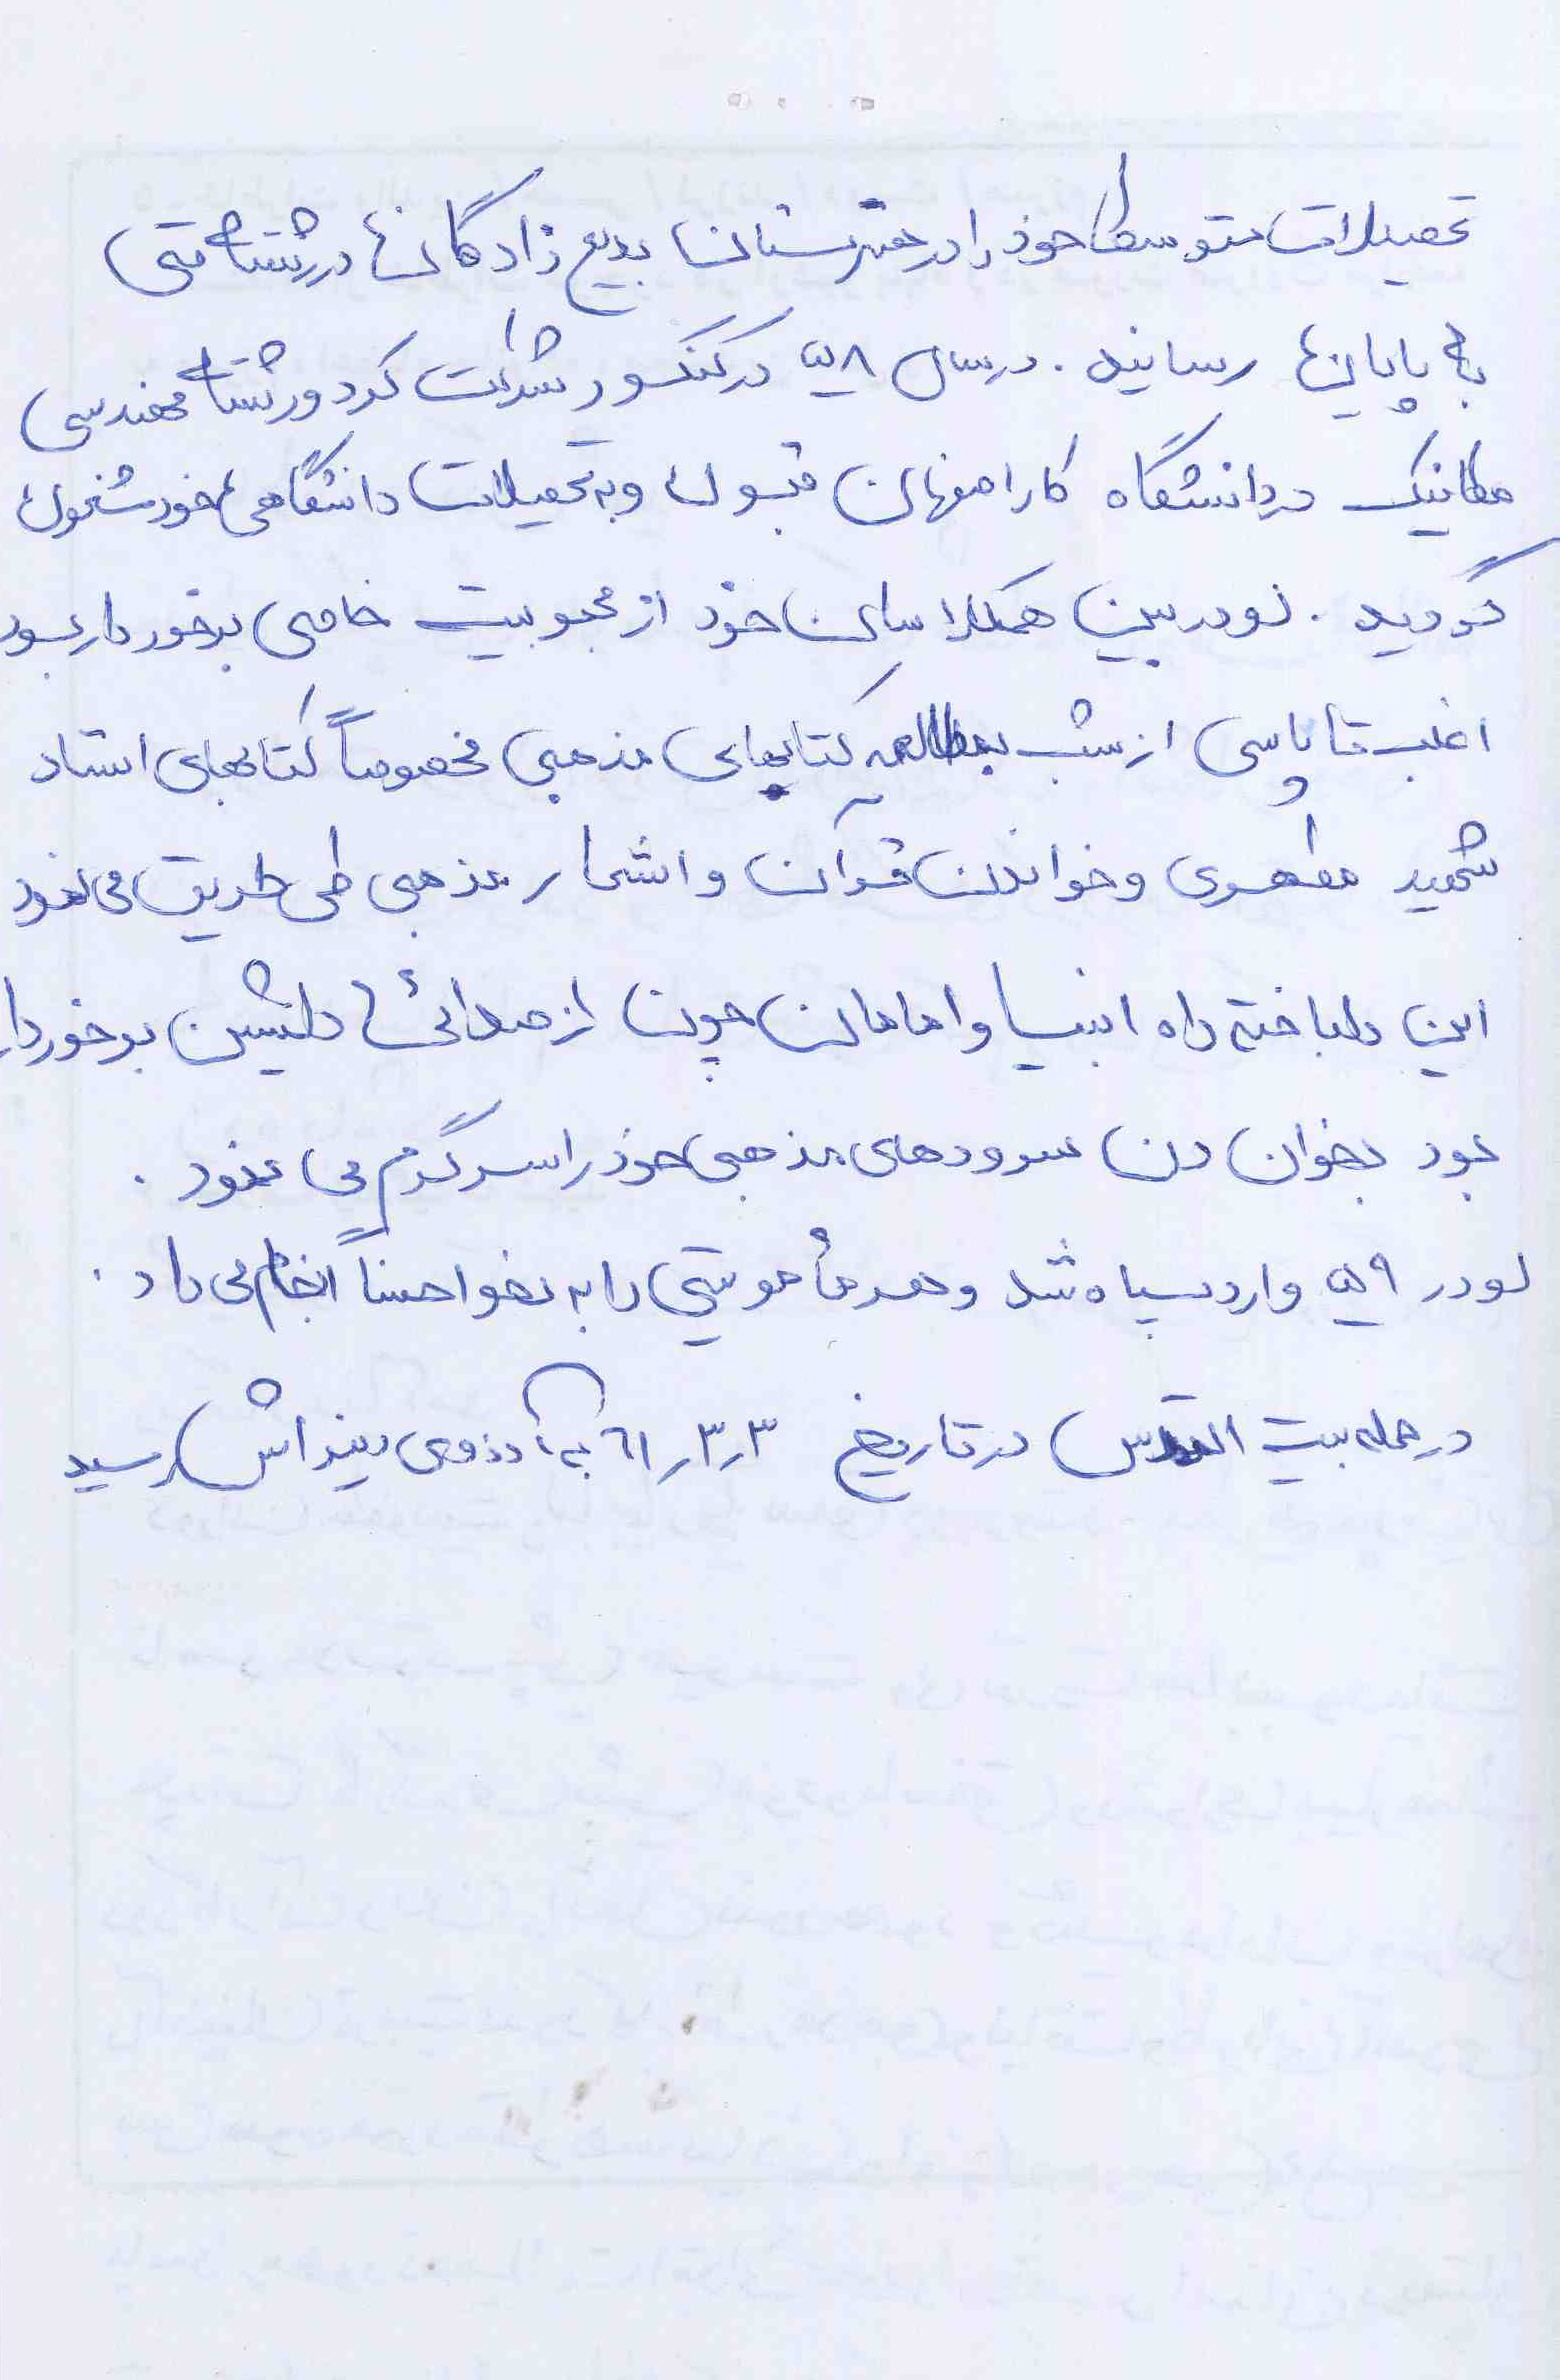 تحصیلات متوسطه خود را در هنرستان بدیع زادگان در رشته فنی
به پایان رسانید. در سال ۵۸ در کنکور شرکت کرد و رشته مهندسی
مکانیک در دانشگاه کار اصفهان قبول و به تحصیلات دانشگاهی خود مشغول
گردید. او در بین همکلاسان خود از محبوبیت خاصی برخوردار بود
اغلب تا پاسی از شب بمطالعه کتابهای مذهبی مخصوصاً کتابهای استاد
شهید مطهری و خواندن قرآن و اشعار مذهبی طی طریق می نمود
این دلباخته راه انبیا و امامان چون از صدائی دلنشین برخوردار
بود بخوان دن سرودهای مذهبی خود را سرگرم می نمود.
او در ۵۹ وارد سپاه شد و هر مأموریتی را به نحو احسناً انجام می داد.
در حمله بیت المقدس در تاریخ ۶۱٫۳٫۳ به آرزوی دیرینه اش رسید